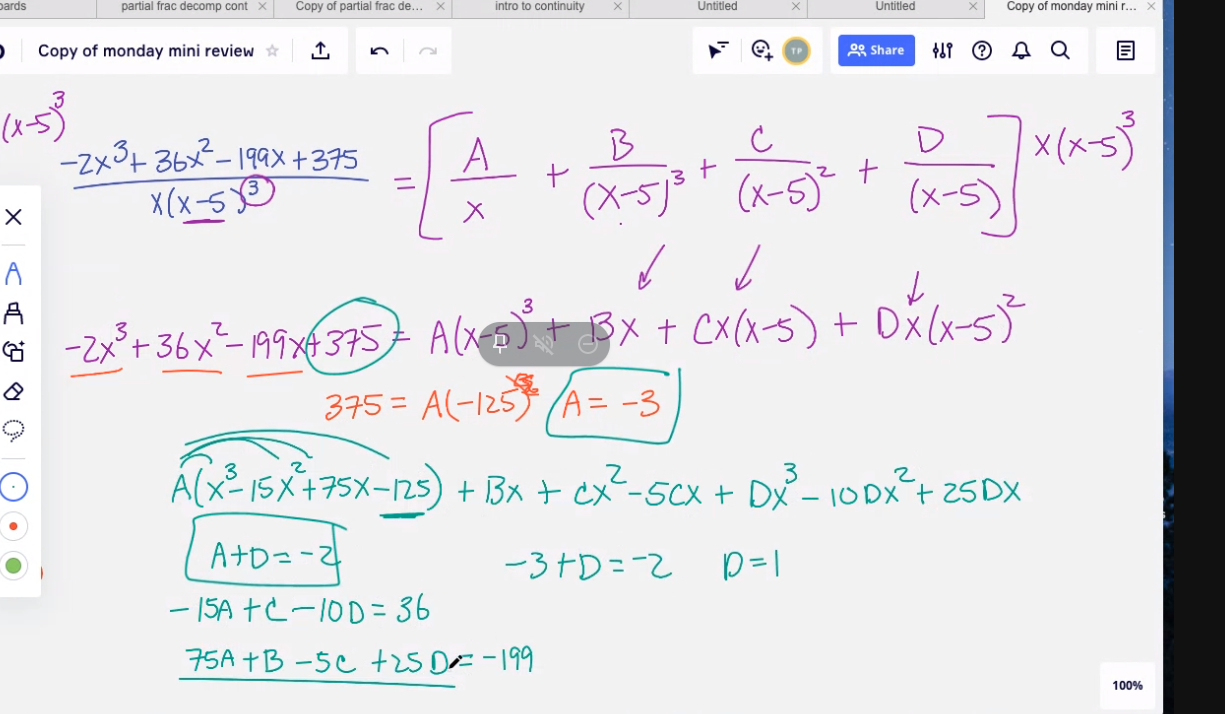 oards partial frac decomp cont Copy of partial frac de... intro to continuity Untitled Untitled Copy of monday mini r...
Copy of monday mini review TP Share
(x-5)^3
-2x^3 + 36x^2 - 199x + 375 / x(x-5)^3 = [A/x + B/(x-5)^3 + C/(x-5)^2 + D/(x-5)] x(x-5)^3
-2x^3 + 36x^2 - 199x + 375 = A(x-5)^3 + Bx + Cx(x-5) + Dx(x-5)^2
375 = A(-125) A = -3
A(x^3 - 15x^2 + 75x - 125) + Bx + Cx^2 - 5Cx + Dx^3 - 10Dx^2 + 25Dx
A+D = -2 -3+D = -2 D=1
-15A + C - 10D = 36
75A + B - 5C + 25D = -199
100%